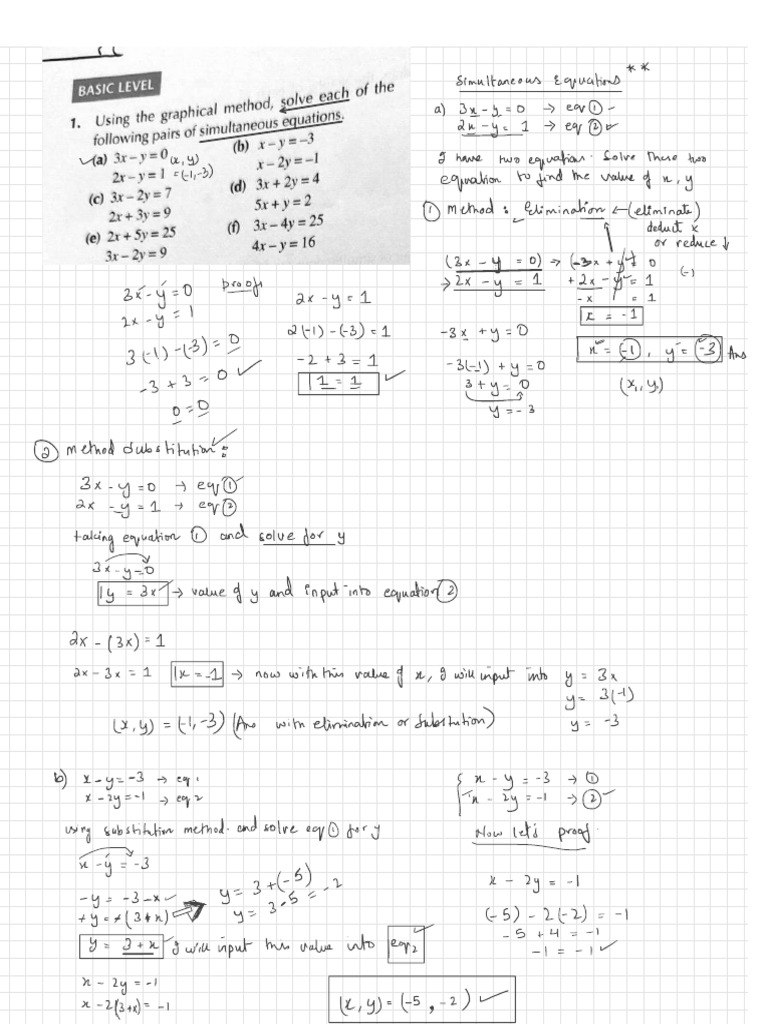 BASIC LEVEL
1. Using the graphical method, solve each of the
following pairs of simultaneous equations.
(a) 3x – y = 0 (x, y)
2x – y = 1 = (-1, -3)
(b) x – y = –3
x – 2y = –1
(c) 3x – 2y = 7
2x + 3y = 9
(d) 3x + 2y = 4
5x + y = 2
(e) 2x + 5y = 25
3x – 2y = 9
(f) 3x – 4y = 25
4x – y = 16
Simultaneous Equations **
a) 3x - y = 0 → eq ①
2x - y = 1 → eq ②
I have two equation. Solve these two
equation to find the value of x, y
① Method: Elimination ← (eliminate)
deduct x
or reduce ↓
(3x - y = 0) → (-3x + y = 0
→ 2x - y = 1 + 2x - y = 1 (-)
-x = 1
x = -1
-3x + y = 0
x = -1, y = -3 Ans
-3(-1) + y = 0
(x, y)
3 + y = 0
y = -3
3x - y = 0 proof
2x - y = 1
3(-1) - (-3) = 0
-3 + 3 = 0
0 = 0
2x - y = 1
2(-1) - (-3) = 1
-2 + 3 = 1
1 = 1
② Method Substitution:
3x - y = 0 → eq ①
2x - y = 1 → eq ②
taking equation ① and solve for y
3x - y = 0
y = 3x → value of y and input into equation ②
2x - (3x) = 1
2x - 3x = 1 x = -1 → now with this value of x, I will input into y = 3x
y = 3(-1)
y = -3
(x, y) = (-1, -3) (Ans with elimination or Substution)
b) x - y = -3 → eq 1
x - 2y = -1 → eq 2
using substitution method. and solve eq ① for y
x - y = -3
-y = -3 - x
+y = +(3 + x)
y = 3 + (-5)
y = 3 - 5 = -2
y = 3 + x I will input this value into eq2
x - 2y = -1
x - 2(3+x) = -1
x - y = -3 → ①
x - 2y = -1 → ②
Now let's proof.
x - 2y = -1
(-5) - 2(-2) = -1
-5 + 4 = -1
-1 = -1
(x, y) = (-5, -2)